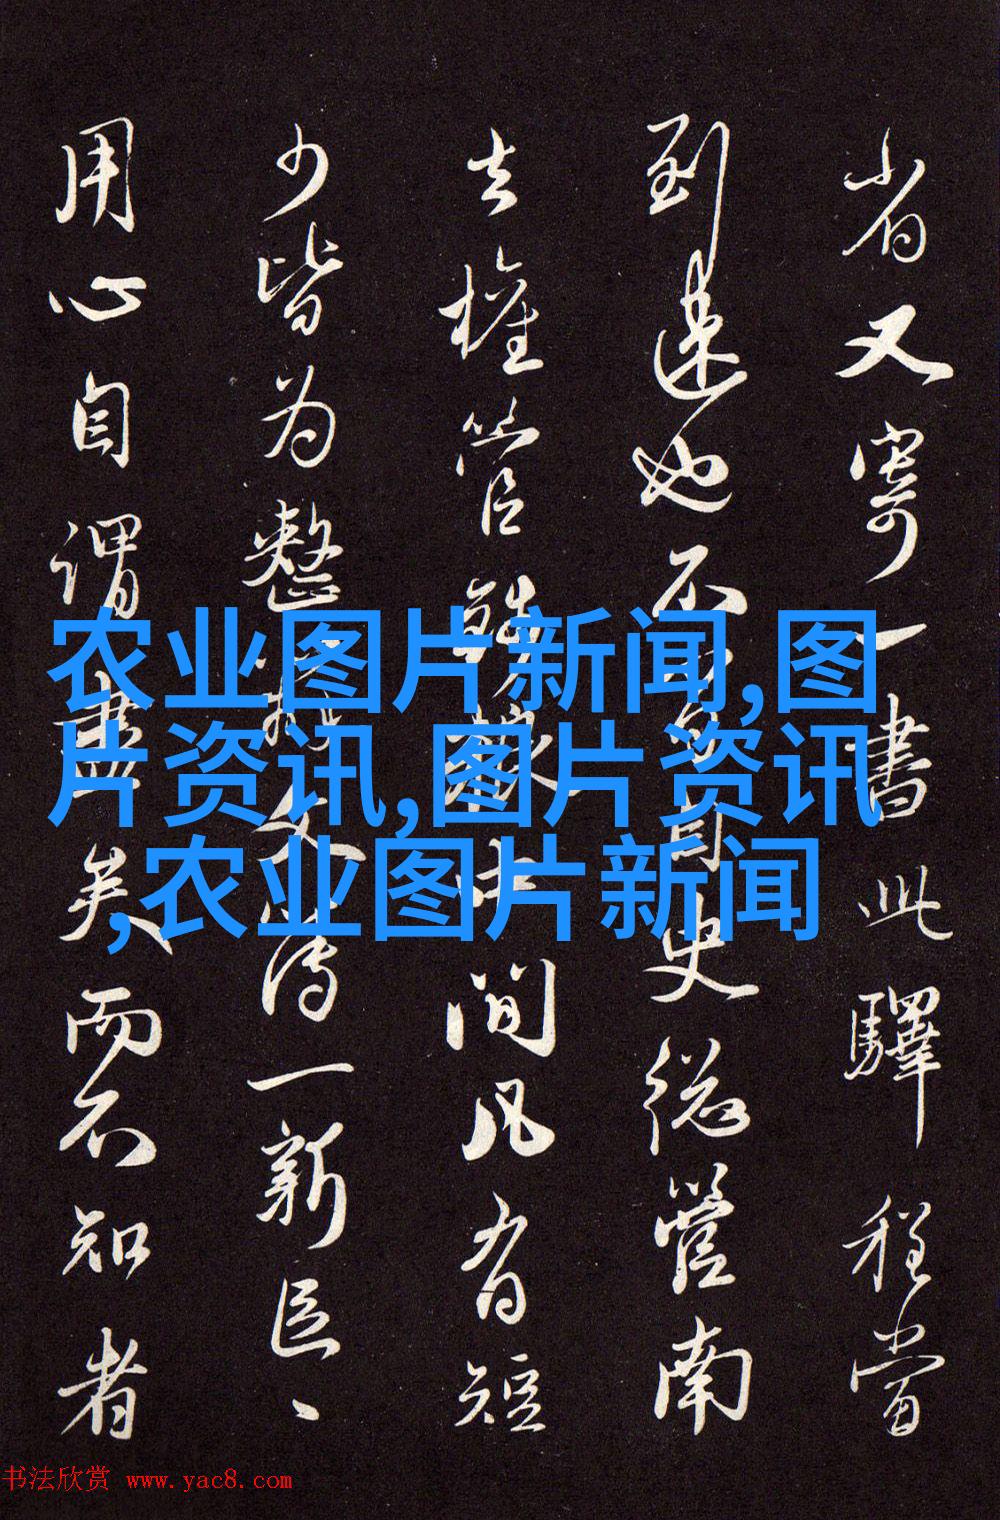 省又寄一書此驛程當
到速也不自史總管南
去權管中間凡有短
少皆为整文一新
用心自谓盡矣而不知者
农业图片新闻,图
片资讯,图片资讯
,农业图片新闻
书法欣赏 www.yac8.com